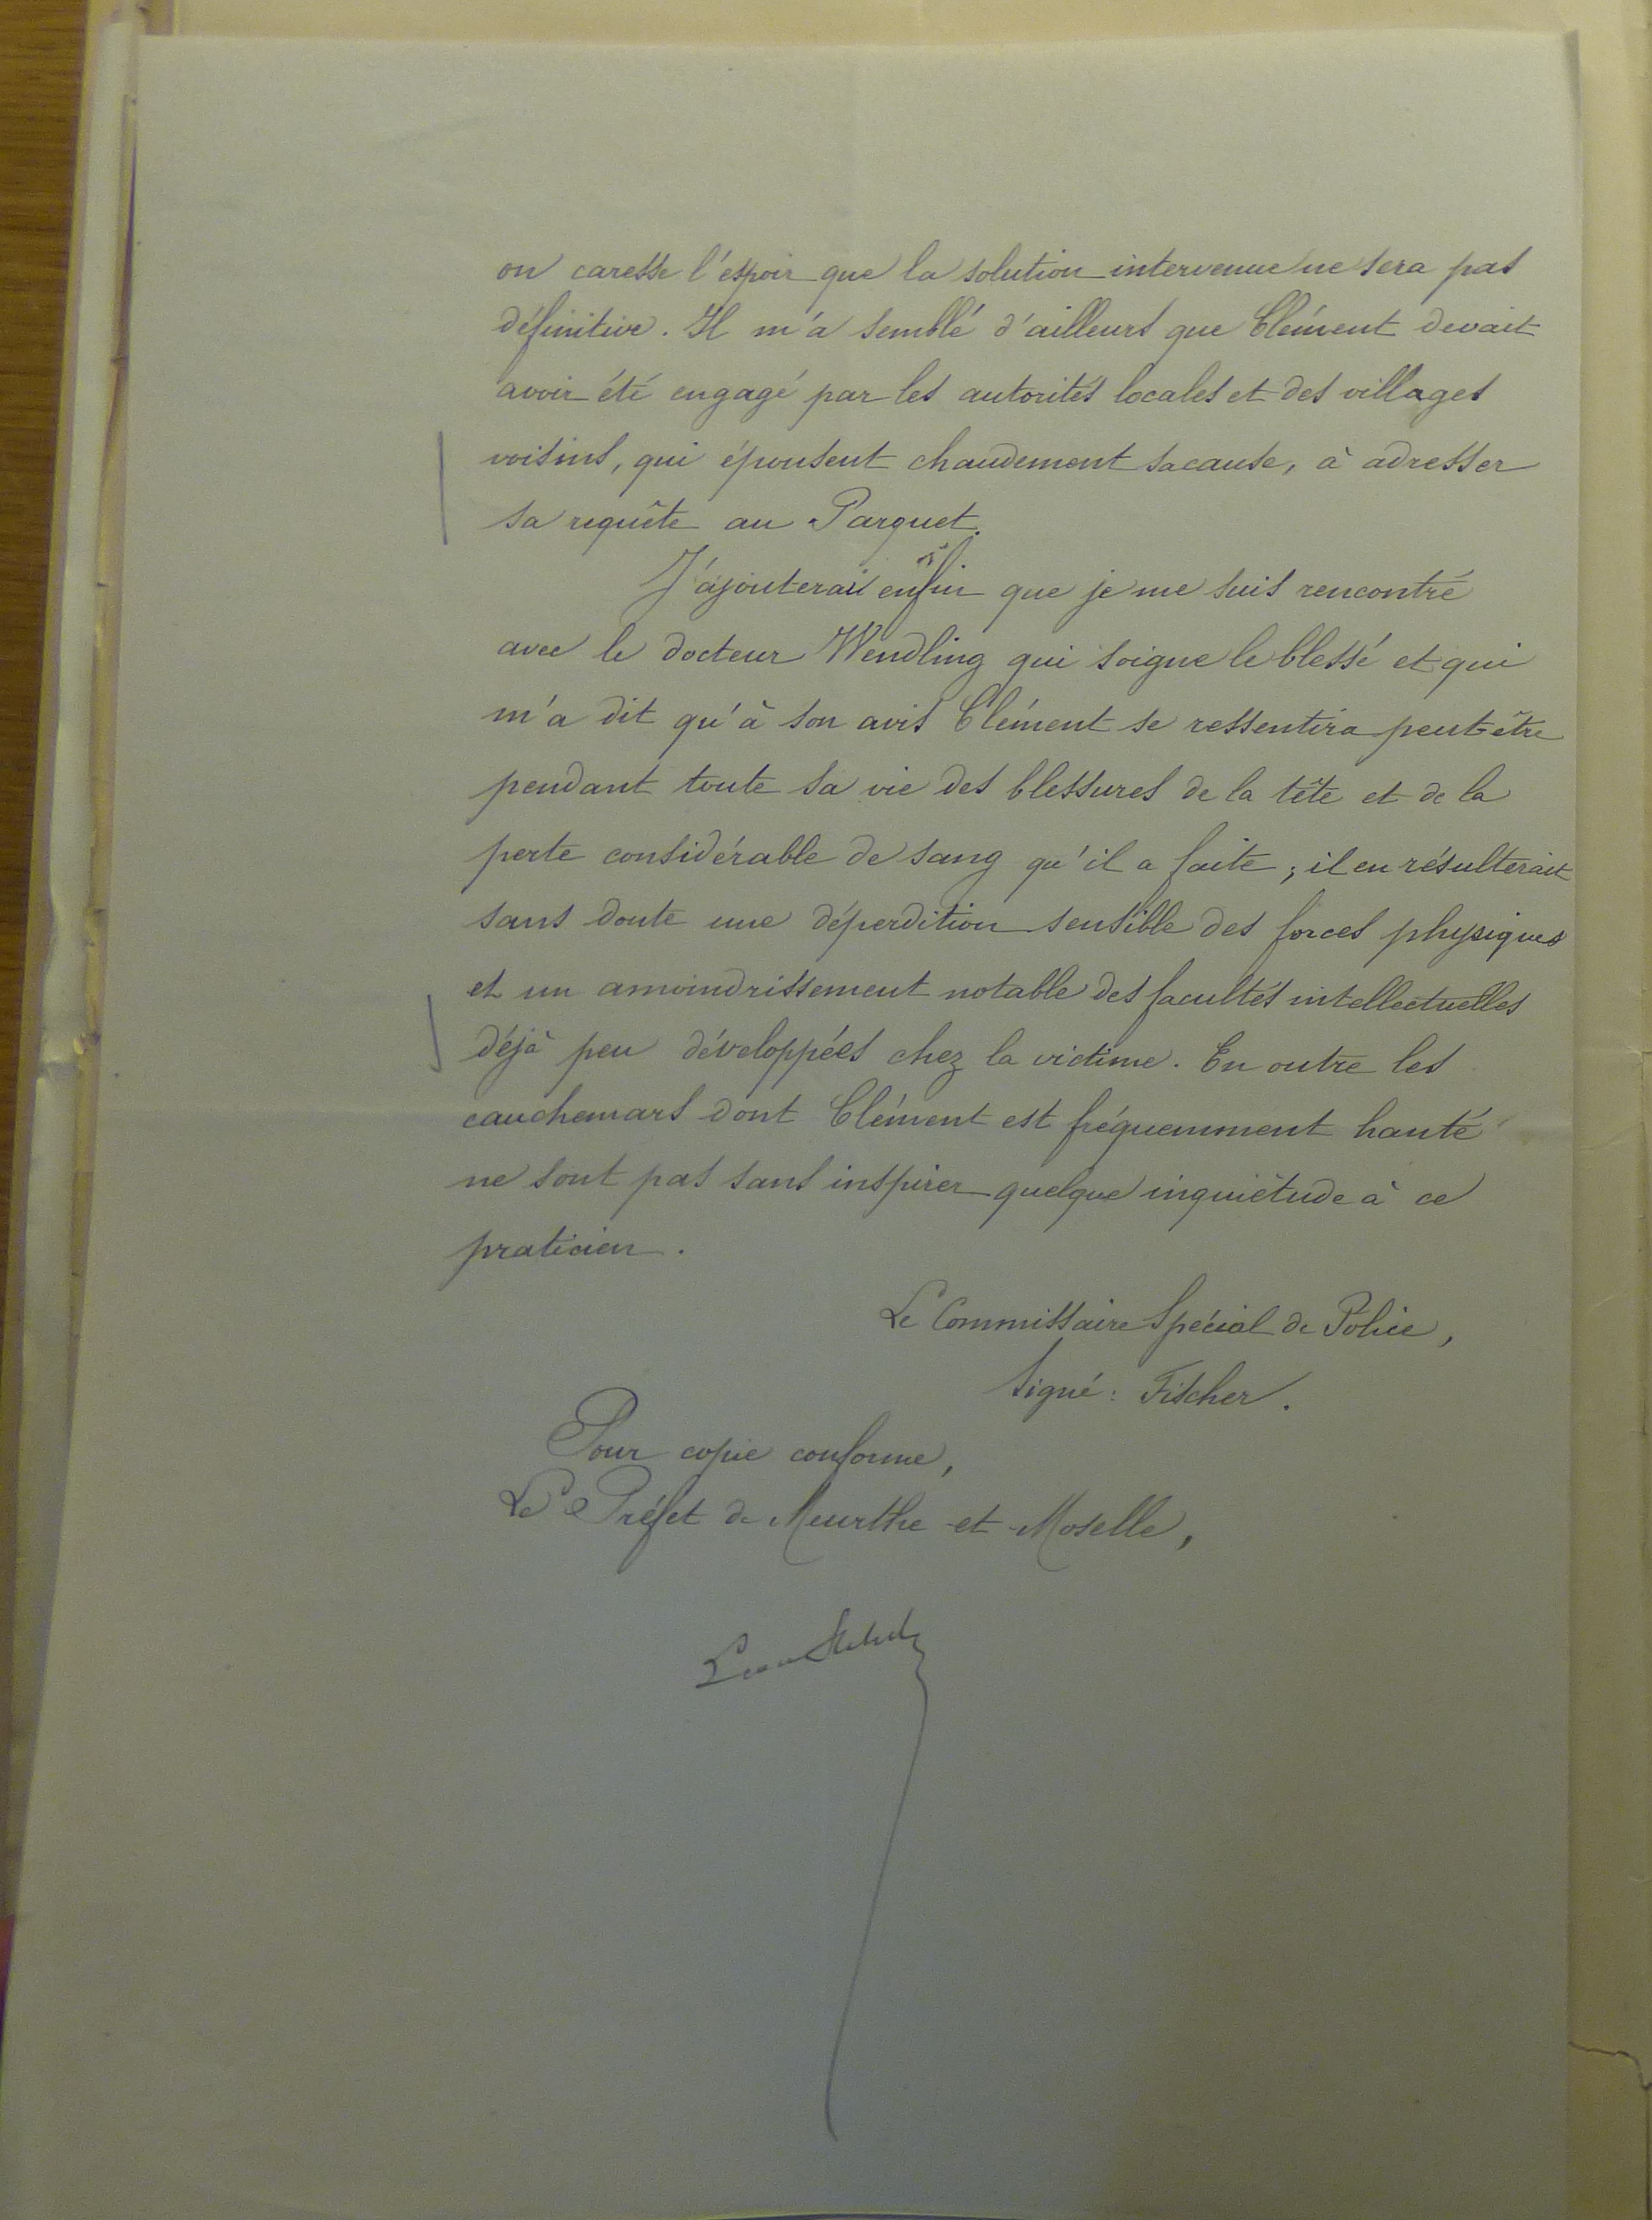 on caresse l'espoir que la solution intervenue ne sera pas
définitive. Il m'a semblé d'ailleurs que Clément devait
avoir été engagé par les autorités locales et des villages
voisins, qui épousent chaudement sa cause, à adresser
sa requête au Parquet.
J'ajouterai enfin que je me suis rencontré
avec le docteur Wendling qui soigne le blessé et qui
m'a dit qu'à son avis Clément se ressentira peut-être
pendant toute sa vie des blessures de la tête et de la
perte considérable de sang qu'il a faite ; il en résulterait
sans doute une déperdition sensible des forces physiques
et un amoindrissement notable des facultés intellectuelles
déjà peu développées chez la victime. En outre les
cauchemars dont Clément est fréquemment hanté
ne sont pas sans inspirer quelque inquiétude à ce
praticien.
Le Commissaire Spécial de Police,
Signé : Fischer.
Pour copie conforme,
Le Préfet de Meurthe et Moselle,